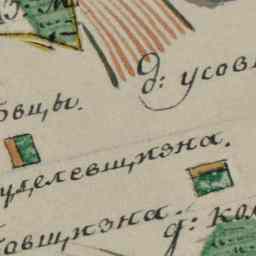 д: усов
вцы.
уделевщизна.
овщизна.
д: кол